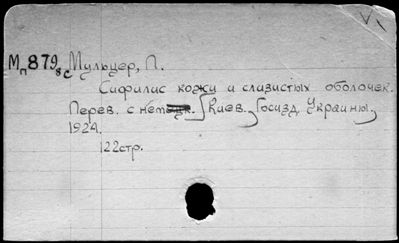 Мп879 8с Мульцер, П.
Сифилис кожи и слизистых оболочек.
Перев. с немецк. Киев. Госизд Украины,
1924.
122стр.